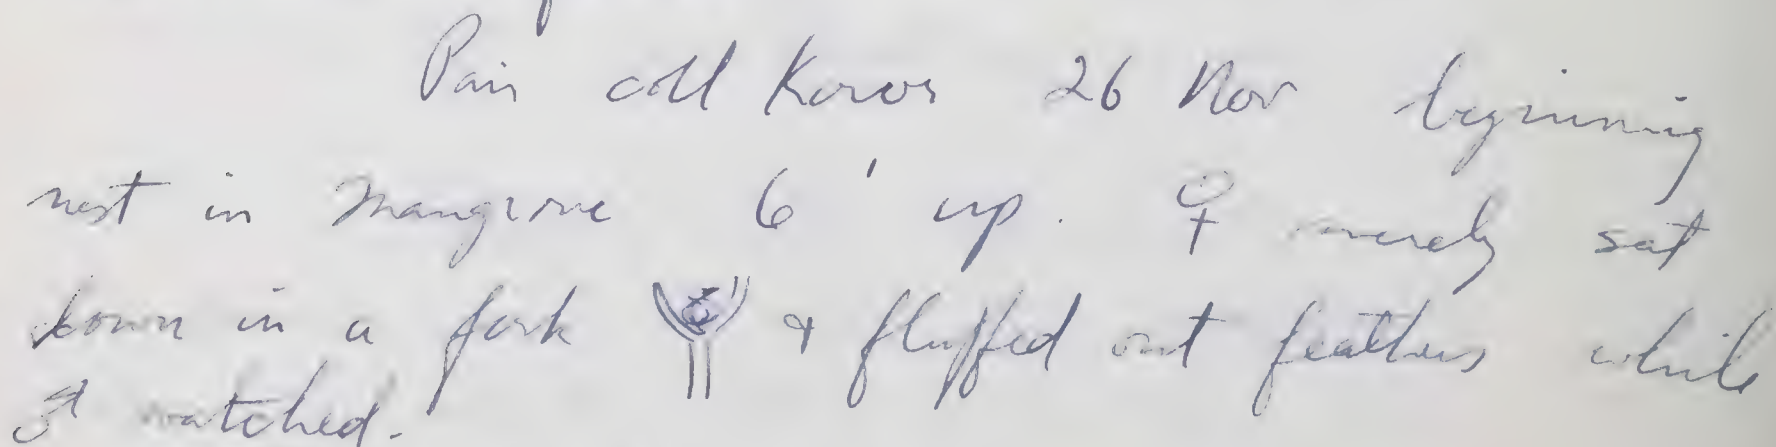 Pair coll Koror 26 Nov beginning
nest in mangrove 6' up. ♀ merely sat
down in a fork & fluffed out feathers while
♂ watched.